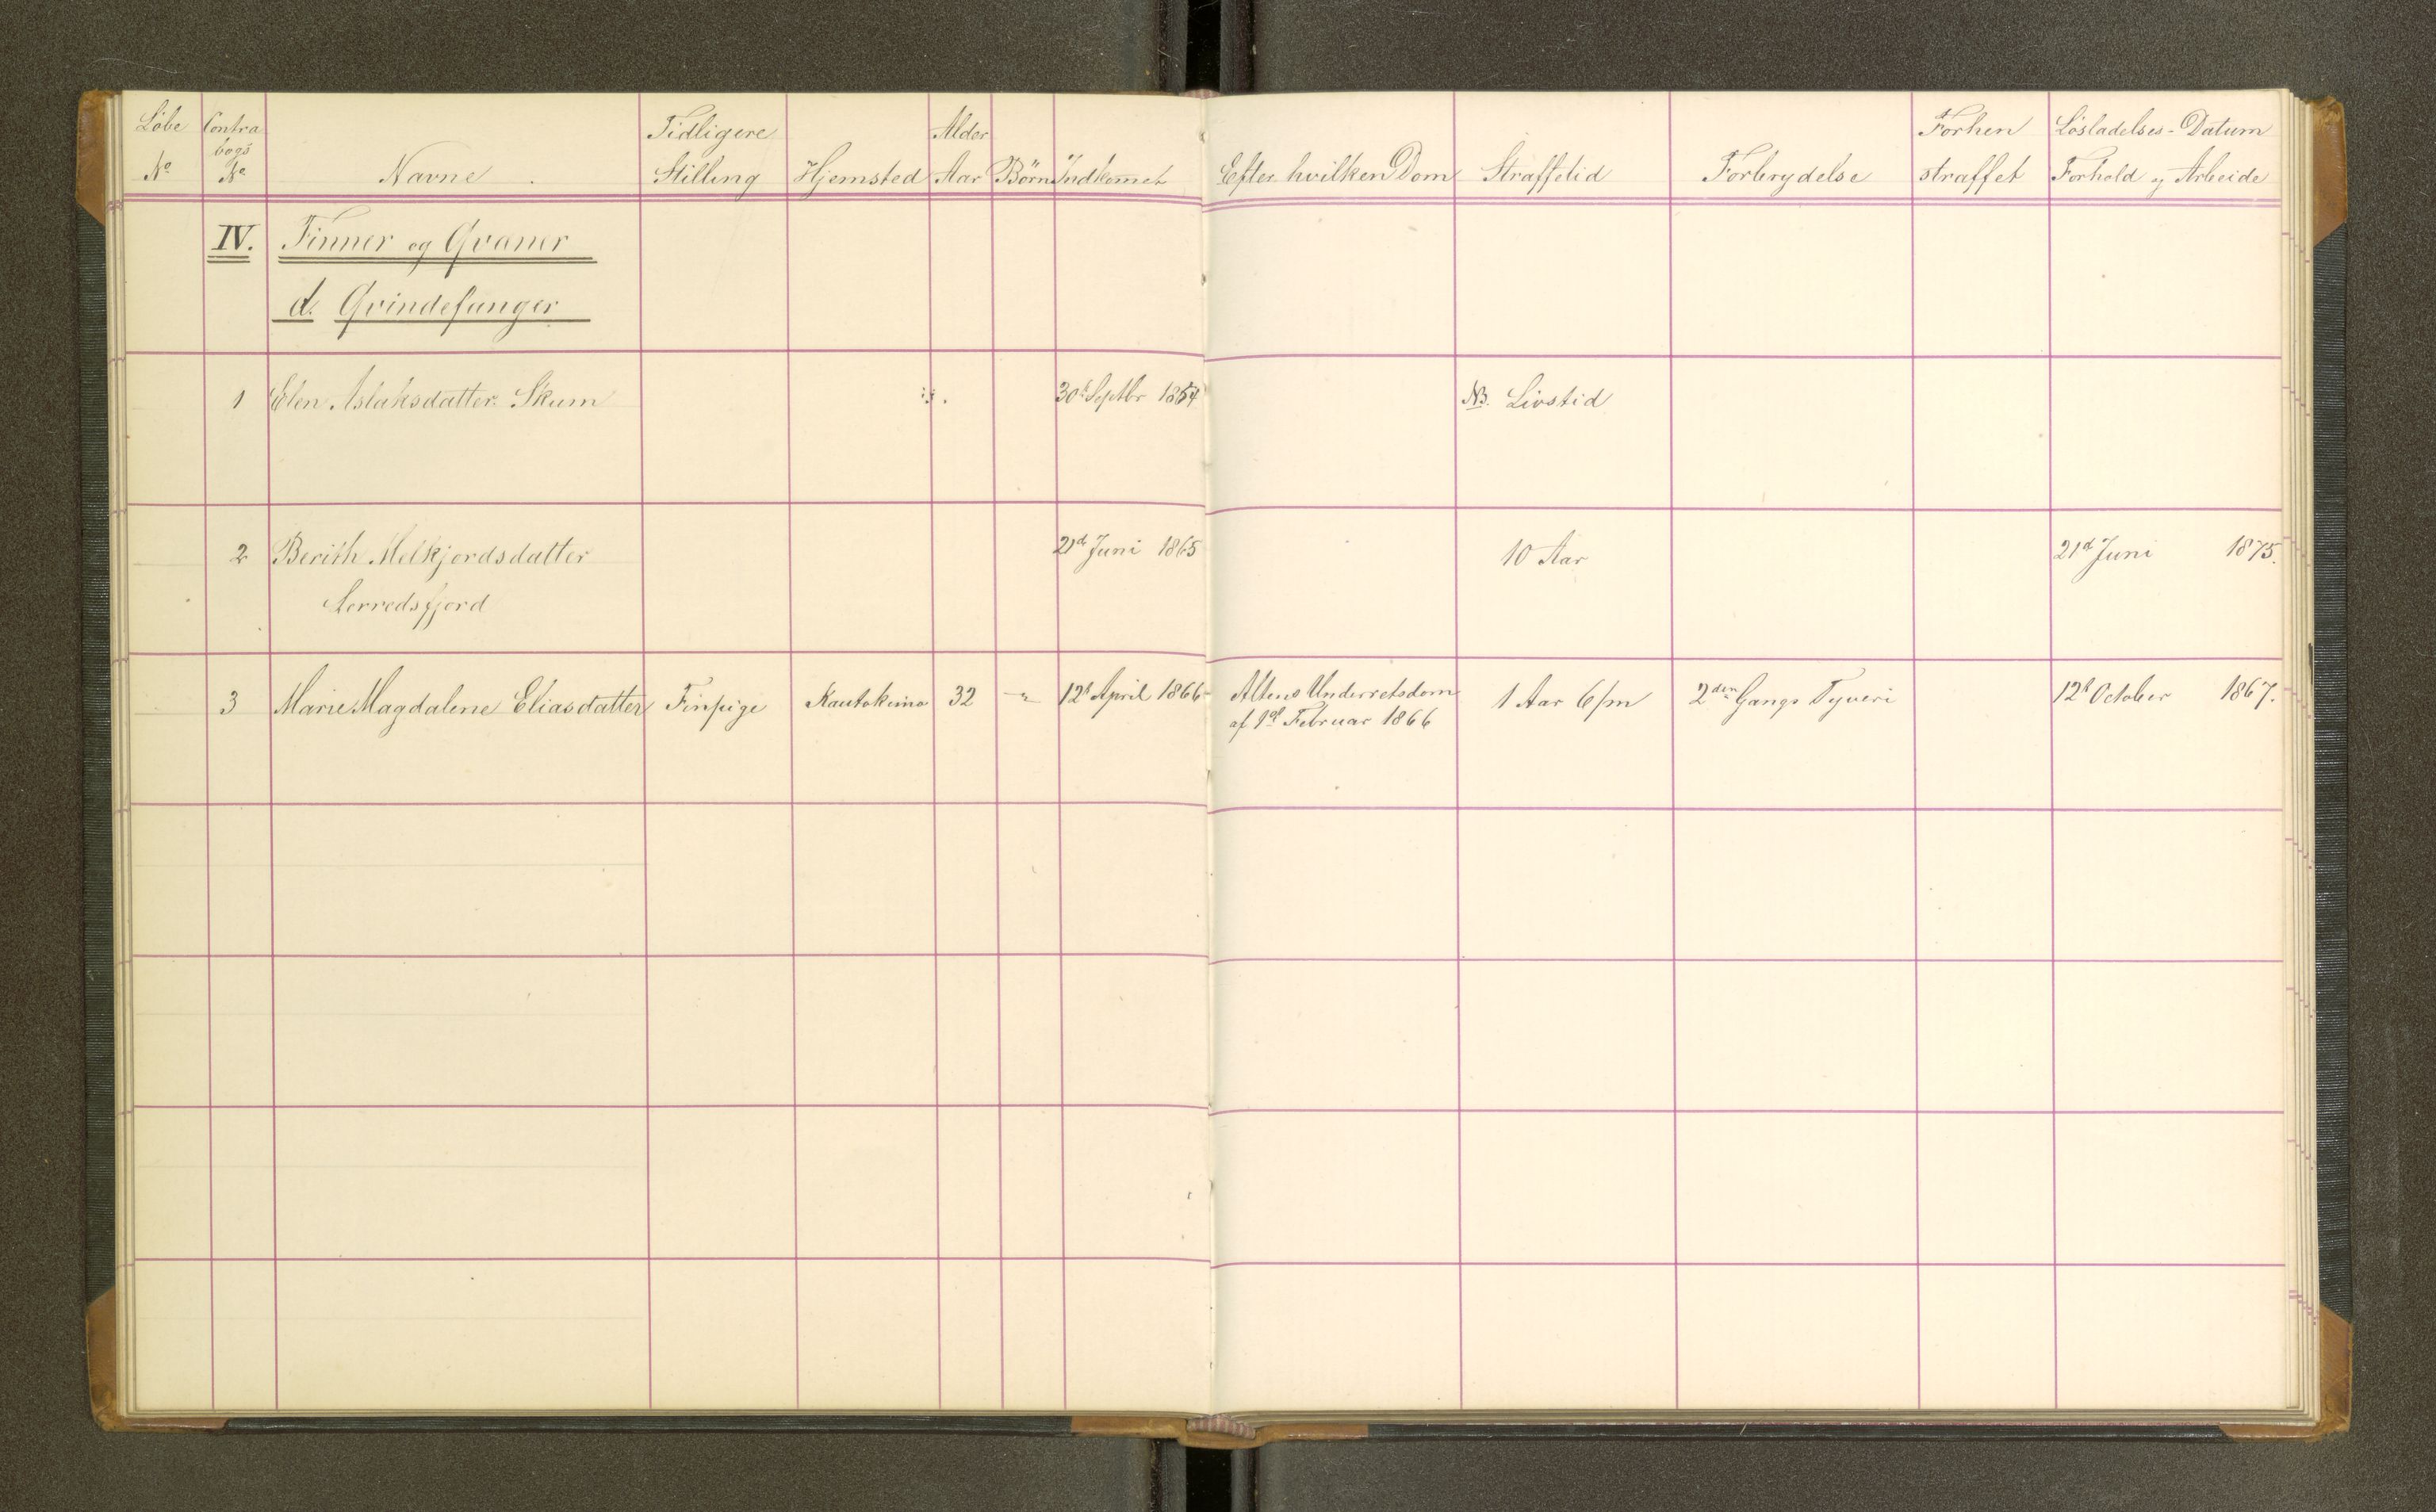 Løbe No Contra bogs No Navne Tidligere Stilling Hjemsted Alder Aar Børn Indkommet Efter hvilken Dom Straffetid Forbrydelse Forhen straffet Løsladelses-Datum Forhold og Arbeide
IV. Finner og Qvæner
d. Qvindefanger
1 Elen Aslaksdatter Skum 30te Septbr 1854 NB. Livstid
2 Berith Melkjordsdatter 21de Juni 1865 10 Aar 21de Juni 1875.
3 Marie Magdalene Eliasdatter Finpige Kautokeino 32 " 12te April 1866 Altens Underretsdom 1 Aar 6/m 2den Gangs Tyveri 12te October 1867.
af Februar 1866